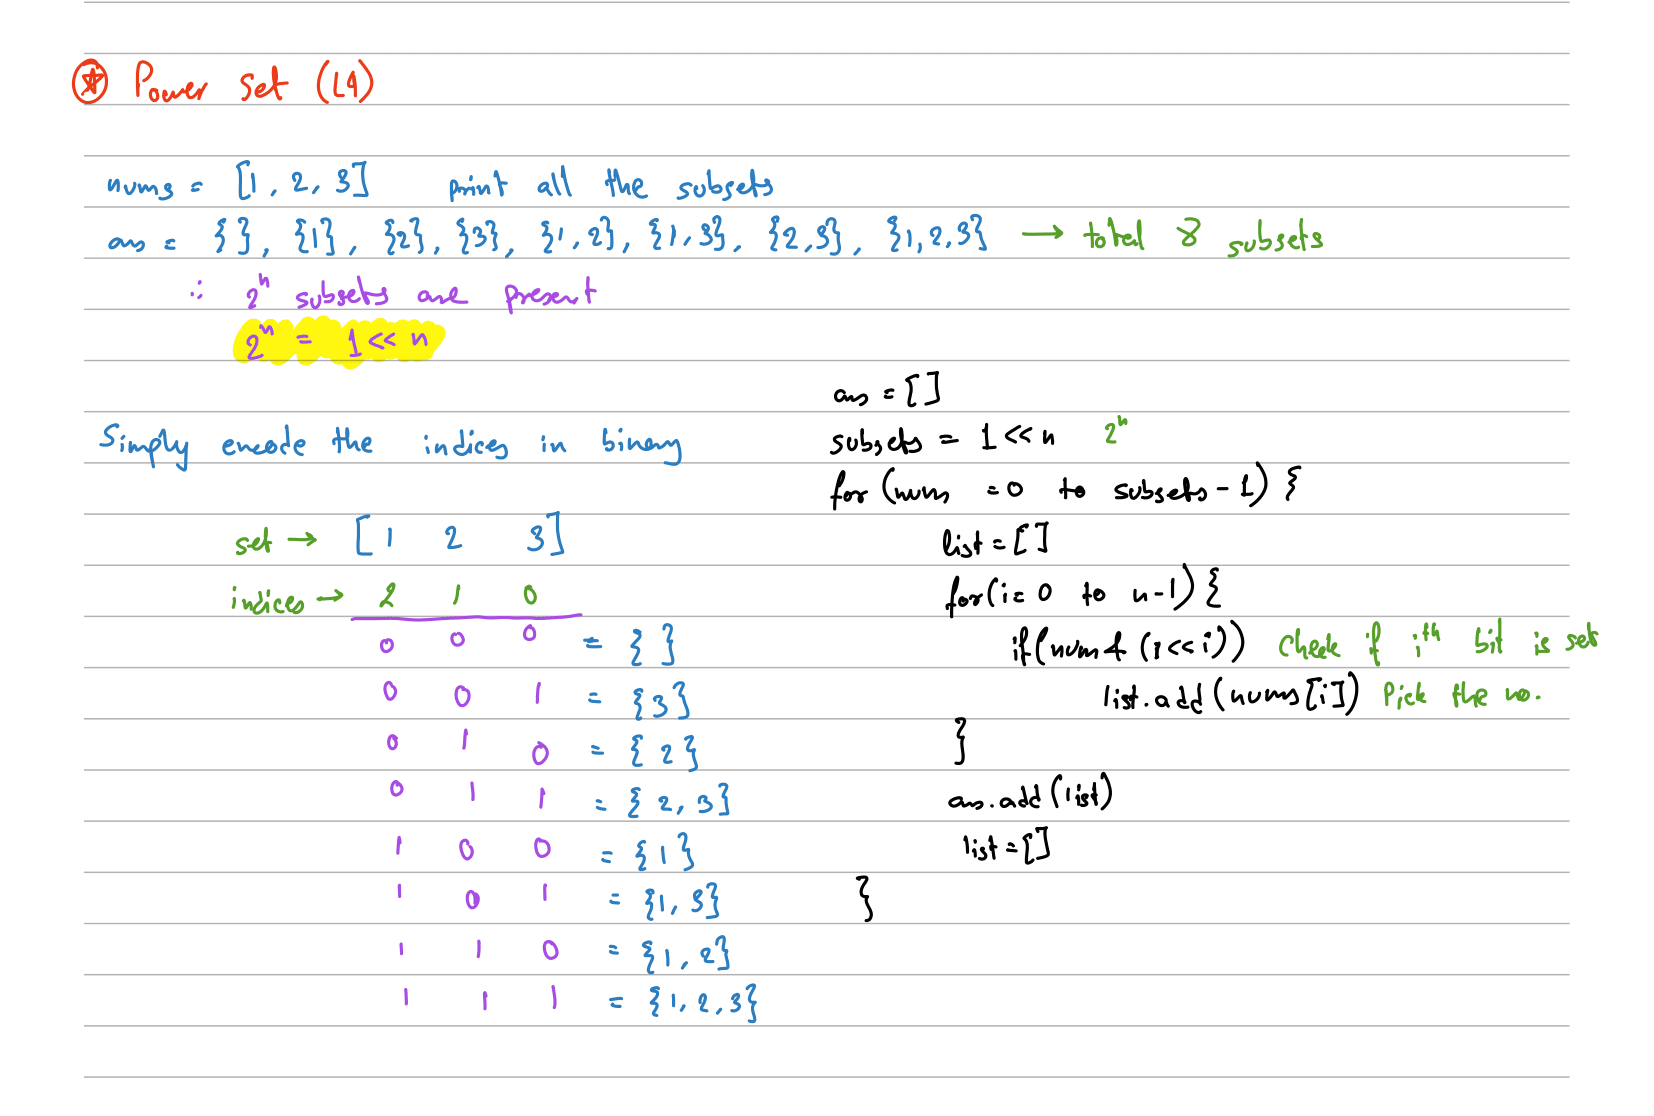 Power Set (L4)
nums = [1, 2, 3] print all the subsets
ans = { }, {1}, {2}, {3}, {1,2}, {1,3}, {2,3}, {1,2,3} → total 8 subsets
∴ 2ⁿ subsets are present
2ⁿ = 1 << n
Simply encode the indices in binary
set → [1 2 3]
indices → 2 1 0
0 0 0 = { }
0 0 1 = {3}
0 1 0 = {2}
0 1 1 = {2, 3}
1 0 0 = {1}
1 0 1 = {1, 3}
1 1 0 = {1, 2}
1 1 1 = {1, 2, 3}
ans = []
subsets = 1 << n 2ⁿ
for (num = 0 to subsets - 1) {
list = []
for (i = 0 to n-1) {
if (num & (1 << i)) Check if iᵗʰ bit is set
list.add (nums[i]) Pick the no.
}
ans.add (list)
list = []
}